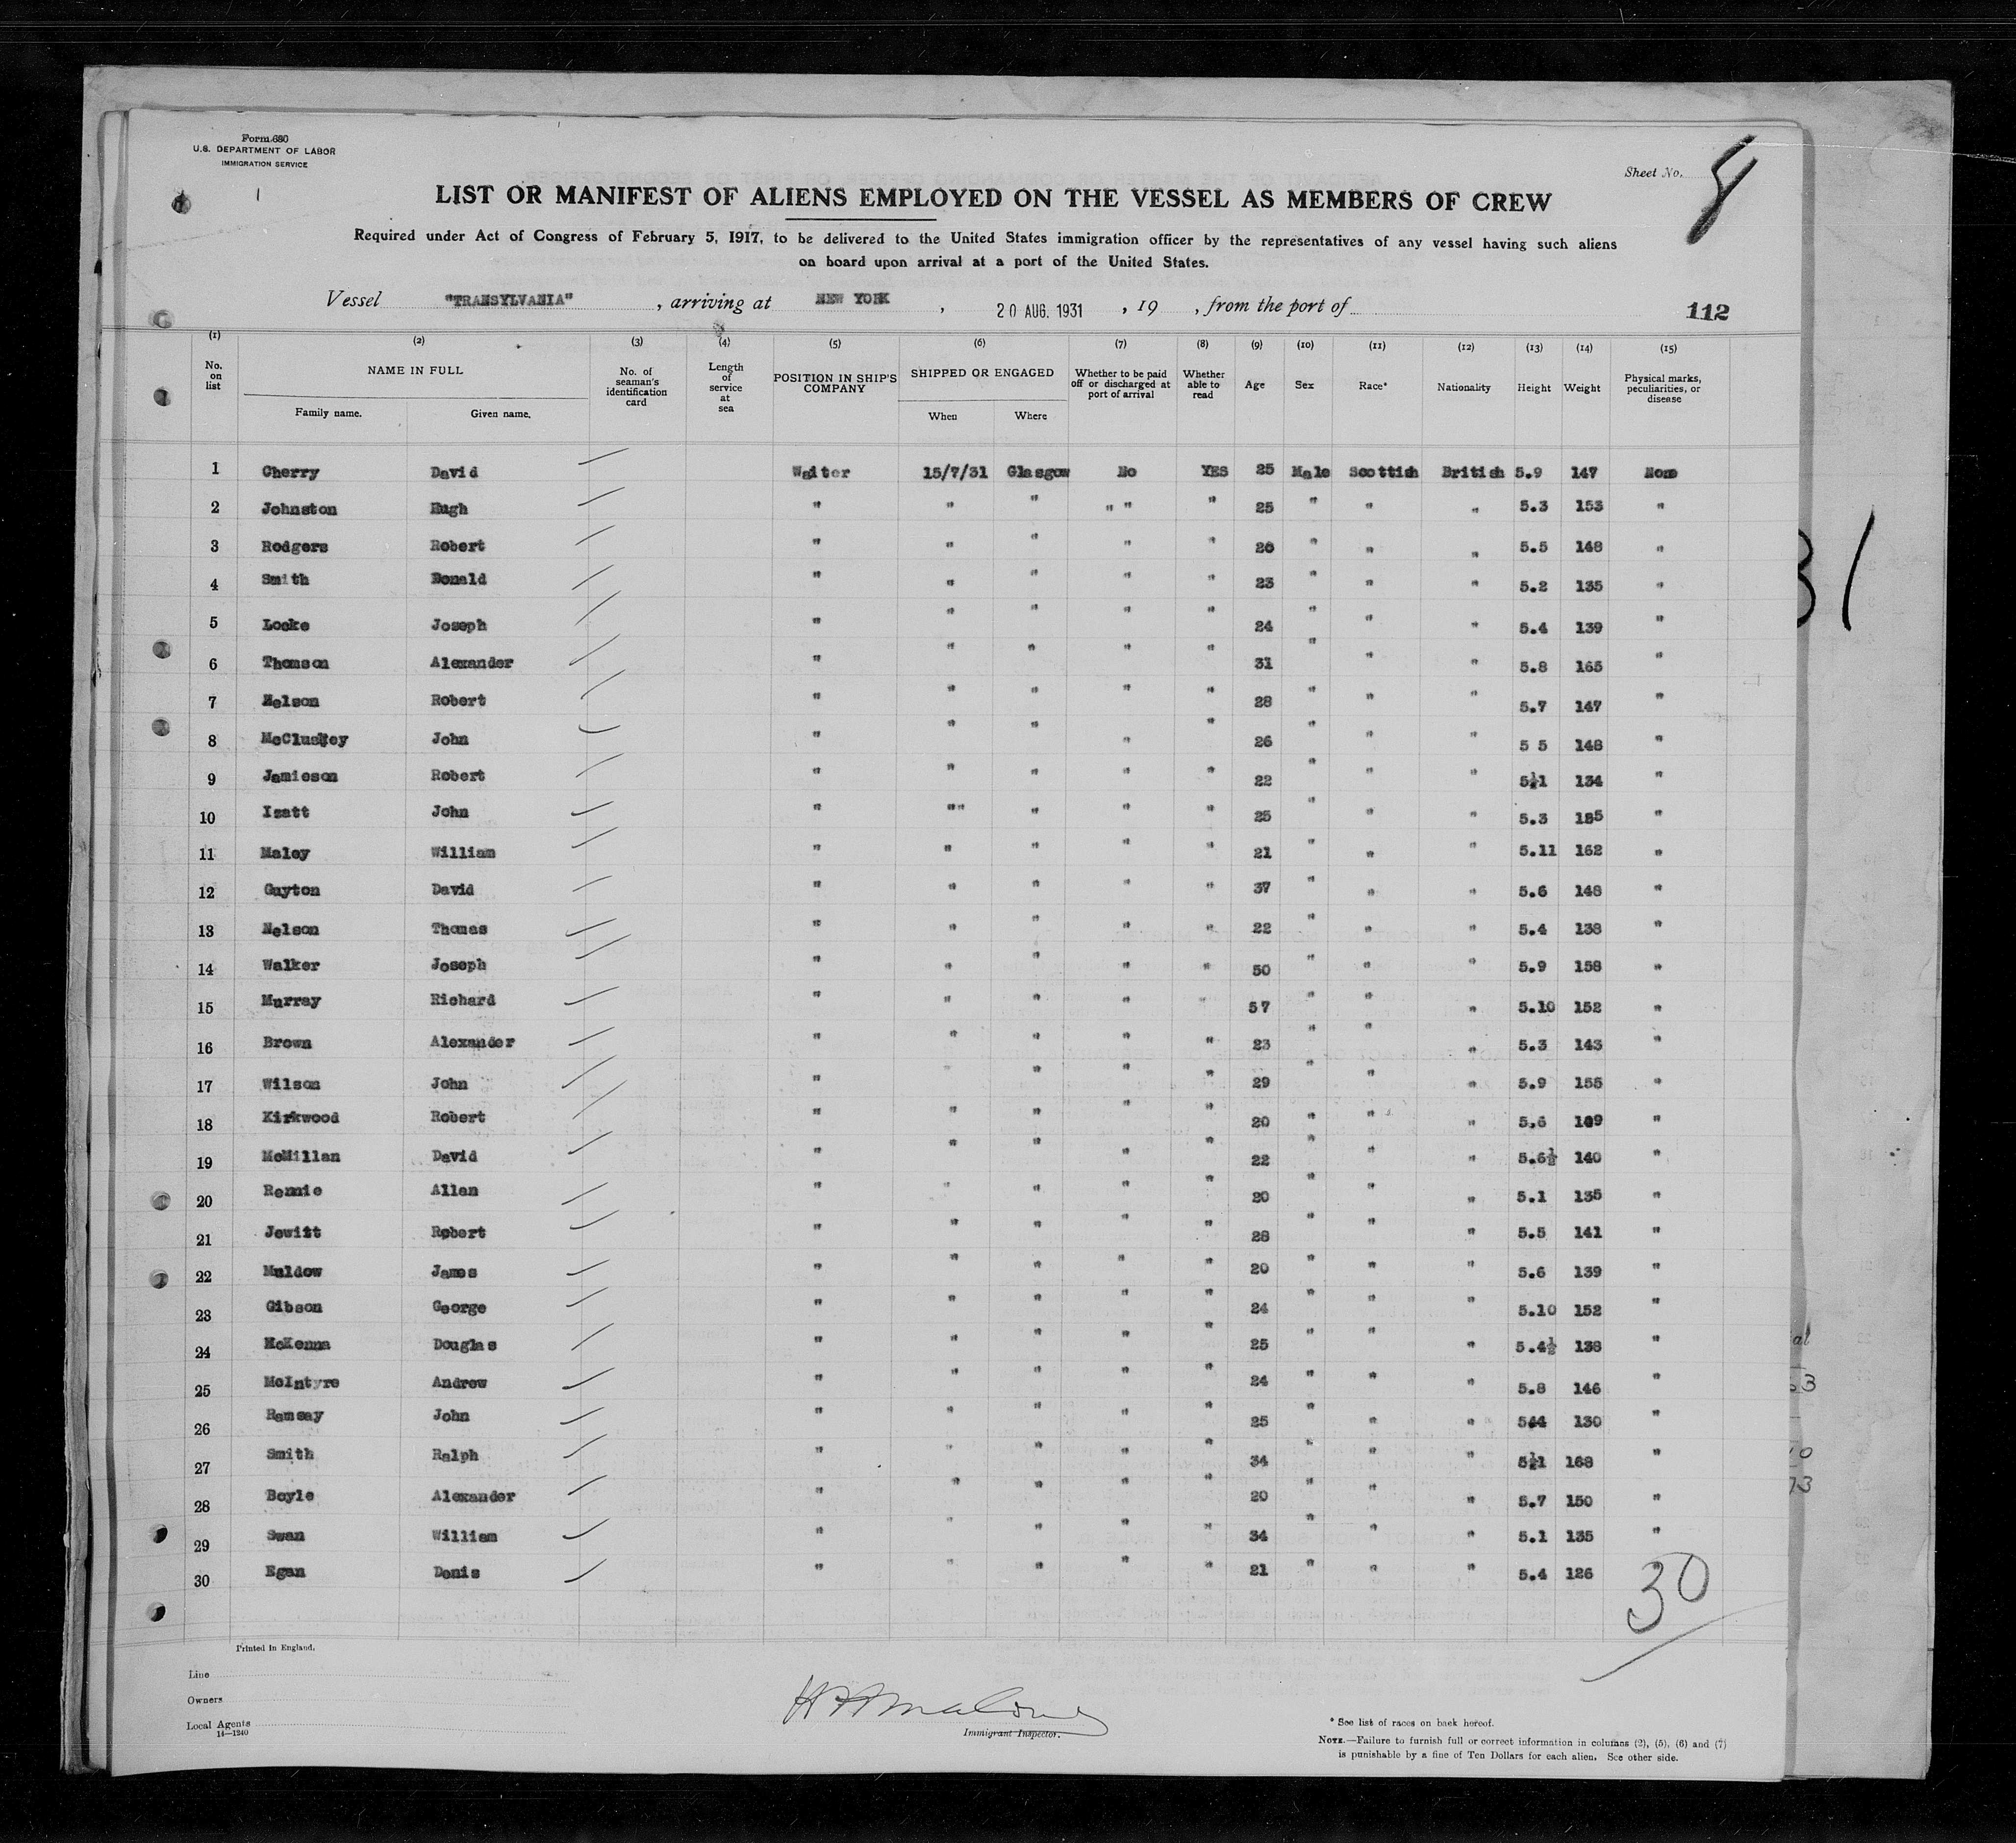 Form 680
U.S. DEPARTMENT OF LABOR
IMMIGRATION SERVICE
Sheet No. 8
LIST OR MANIFEST OF ALIENS EMPLOYED ON THE VESSEL AS MEMBERS OF CREW
Required under Act of Congress of February 5, 1917, to be delivered to the United States immigration officer by the representatives of any vessel having such aliens
on board upon arrival at a port of the United States.
Vessel "TRANSYLVANIA", arriving at NEW YORK, 20 AUG. 1931, 19 , from the port of
112
(1) (2) (3) (4) (5) (6) (7) (8) (9) (10) (11) (12) (13) (14) (15)
No. on list NAME IN FULL Family name. Given name. No. of seaman's identification card Length of service at sea POSITION IN SHIP'S COMPANY SHIPPED OR ENGAGED When Where Whether to be paid off or discharged at port of arrival Whether able to read Age Sex Race* Nationality Height Weight Physical marks, peculiarities, or disease
1 Cherry David Waiter 15/7/31 Glasgow No YES 25 Male Scottish British 5.9 147 None
2 Johnston Hugh " " " " " " 25 " " " 5.3 153 "
3 Rodgers Robert " " " " " 20 " " " 5.5 148 "
4 Smith Donald " " " " " 23 " " " 5.2 135 "
5 Locke Joseph " " " " " 24 " " " 5.4 139 "
6 Thomson Alexander " " " " " 31 " " " 5.8 165 "
7 Nelson Robert " " " " " 28 " " " 5.7 147 "
8 McCluskey John " " " " " 26 " " " 5 5 148 "
9 Jamieson Robert " " " " " 22 " " " 5½1 134 "
10 Izatt John " "" " " " 25 " " " 5.3 "
11 Maley William " " " " " 21 " " " 5.11 162 "
12 Guyton David " " " " " 37 " " " 5.6 148 "
13 Nelson Thomas " " " " " 22 " " " 5.4 138 "
14 Walker Joseph " " " " " 50 " " " 5.9 158 "
15 Murray Richard " " " " " 57 " " " 5.10 152 "
16 Brown Alexander " " " " " 23 " " " 5.3 143 "
17 Wilson John " " " " 29 " " " 5.9 155 "
18 Kirkwood Robert " " " " " 20 " " " 5.6 "
19 McMillan David " " " " " 22 " " " 5.6½ 140 "
20 Rennie Allan " " " " " 20 " " " 5.1 135 "
21 Jewitt Robert " " " " " 28 " " " 5.5 141 "
22 Muldow James " " " " " 20 " " " 5.6 139 "
23 Gibson George " " " " " 24 " " " 5.10 152 "
24 McKenna Douglas " " " " " 25 " " " 5.4½ 138 "
25 McIntyre Andrew " " " " " 24 " " " 5.8 146 "
26 Ramsay John " " " " " 25 " " " 130 "
27 Smith Ralph " " " " " 34 " " " 5½1 168 "
28 Boyle Alexander " " " " " 20 " " " 5.7 150 "
29 Swan William " " " " " 34 " " " 5.1 135 "
30 Egan Denis " " " " " 21 " " " 5.4 126
30
Printed in England.
Line
Owners
Local Agents
14—1240
Immigrant Inspector.
* See list of races on back hereof.
NOTE.—Failure to furnish full or correct information in columns (2), (5), (6) and (7)
is punishable by a fine of Ten Dollars for each alien. See other side.